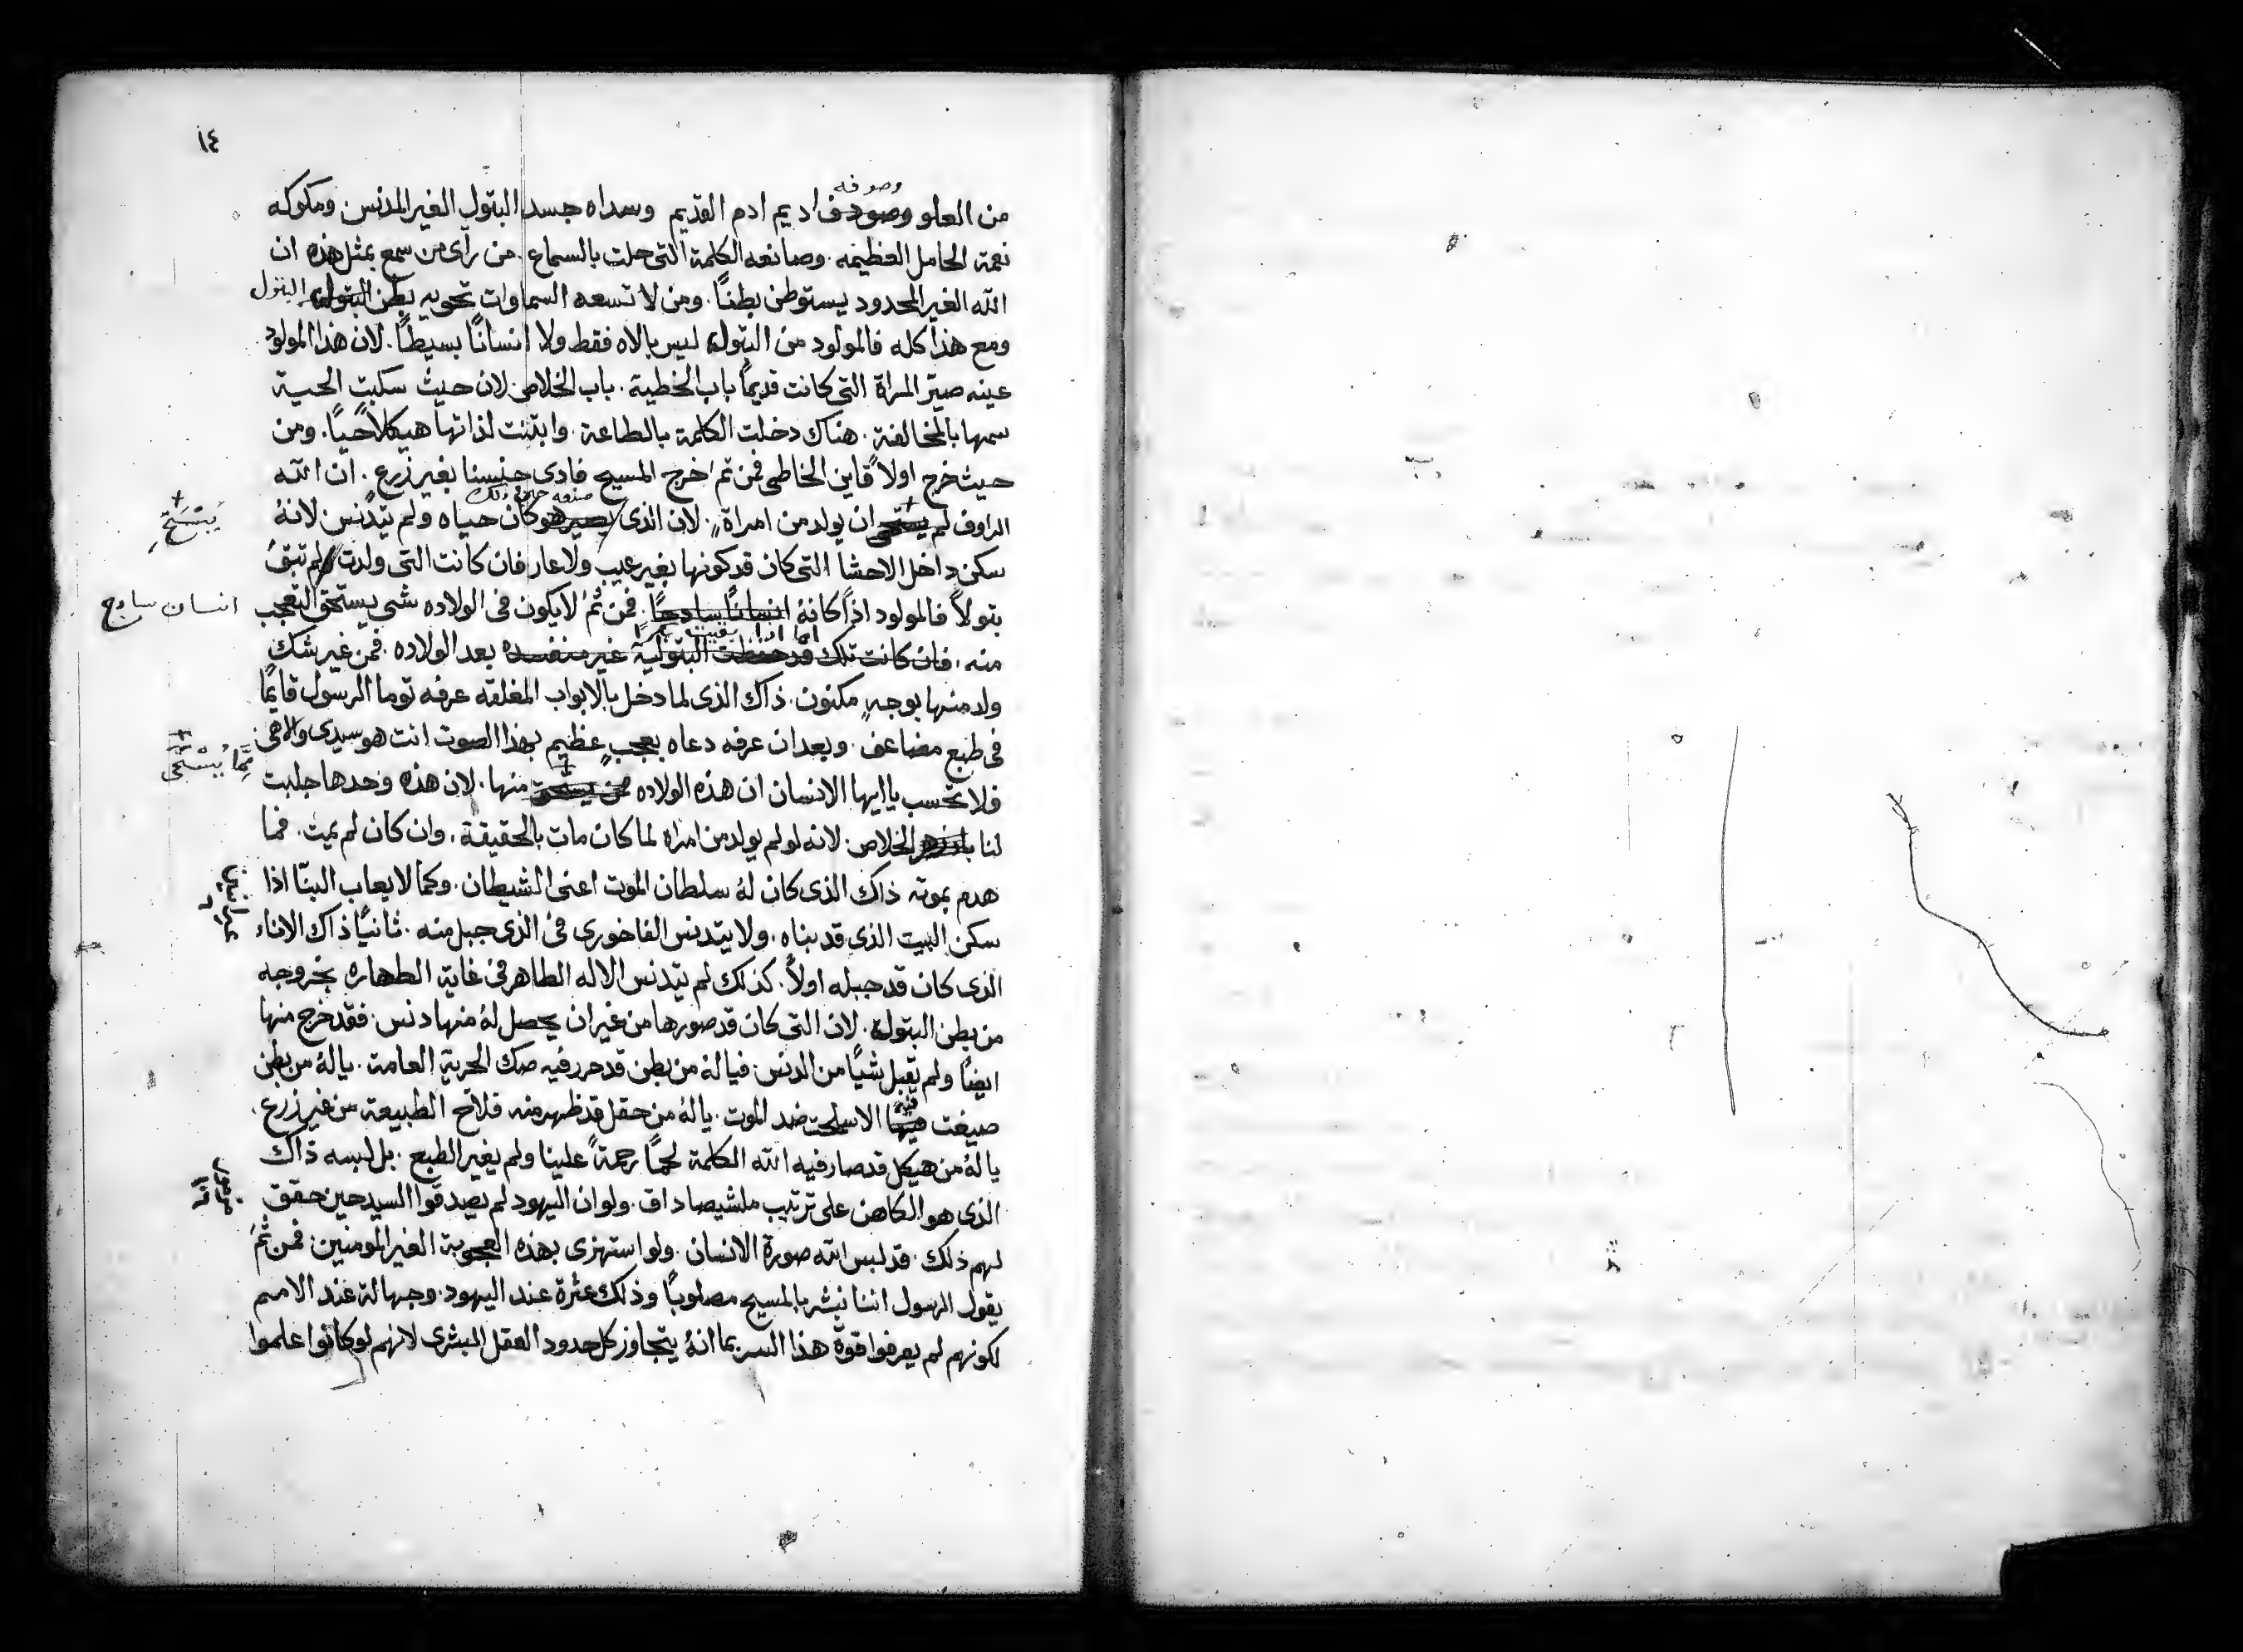 ١٤
وصوفه
من العلو وصوف اديم ادم القديم وسداه جسد البتول الغير المدنس ومكوكه
نعمة الحامل العظيمه. وصانعه الكلمة التى حلت بالسماع. من رأى من سمع بمثل هذه ان
الله الغير المحدود يستوطن بطناً. ومن لا تسعه السماوات تحويه بطن البتولة البتول
ومع هذا كله فالمولود من البتولة ليس بالاه فقط ولا انساناً بسيطاً. لان هذا المولود
عينه صيّر المراة التى كانت قديماً باب الخطية. باب الخلاص لان حيث سكبت الحية
سمها بالمخالفة. هناك دخلت الكلمة بالطاعة. وابتنت لذاتها هيكلاً حياً. ومن
حيث خرج اولاً قاين الخاطى فمن ثم خرج المسيح فادى جنسنا بغير زرع. ان الله
الراوف لم يستحى ان يولد من امراة. لان الذى يصير هو كان حياه ولم يتدنس لانهُ
سكن داخل الاحشا التى كان قد كونها بغير عيب ولا عار فان كانت التى ولدت لم تبقَ
بتولاً فالمولود اذاً كانهُ انساناً سادجاً. فمن ثُم لا يكون فى الولاده شى يستحق التعجب
انسان سادج
اما اذا بقيت بكراً
منه. فان كانت تلك قد حفظت البتولية غير منفسده بعد الولاده. فمن غير شك
ولد منها بوجهٍ مكنون. ذاك الذى لما دخل بالابواب المغلقه عرفه توما الرسول قايمًا
فى طبع مضاعف. وبعد ان عرفه دعاه بعجبٍ عظيم بهذا الصوت انت هو سيدى والاهى
فلا تحسب يا ايها الانسان ان هذه الولاده منها. لان هذه وحدها جلبت
لنا الخلاص. لانه لو لم يولد من امراه لما كان مات بالحقيقة. وان كان لم يمت. فما
هدم بموته ذاك الذى كان لهُ سلطان الموت اعنى الشيطان. وكما لا يعاب البنّا اذا
سكن البيت الذى قد بناه. ولا يتدنس الفاخورى فى الذى جبل منه. ثانياً ذاك الاناء
الذى كان قد جبله اولاً. كذلك لم يتدنس الاله الطاهر فى غاية الطهاره بخروجه
من بطن البتولة. لان التى كان قد صورها من غير ان يحصل لهُ منها دنس. فقد خرج منها
ايضاً ولم يقبل شياً من الدنس. فيالهُ من بطن قد حرر فيه صك الحرية العامة. يالهُ من بطن
فيه
صيغت فيها الاسلحة ضد الموت. يالهُ من حقل قد ظهر منه فلاح الطبيعة من غير زرع.
يالهُ من هيكل قد صار فيه الله الكلمة لحماً رحمةً علينا ولم يغير الطبع. بل لبسه ذاك
الذى هو الكاهن على ترتيب ملشيصاداق. ولو ان اليهود لم يصدقوا السيد حين حقق
لهم ذلك. قد لبس الله صورة الانسان. ولو استهزى بهذه العجوبة الغير المومنين. فمن ثُمَ
يقول الرسول اننا نبشر بالمسيح مصلوباً وذلك عثرة عند اليهود. وجهالة عند الامم
لكونهم لم يعرفوا قوة هذا السر بما انهُ يتجاوز كل حدود العقل البشرى لانهم لو كانوا علموا